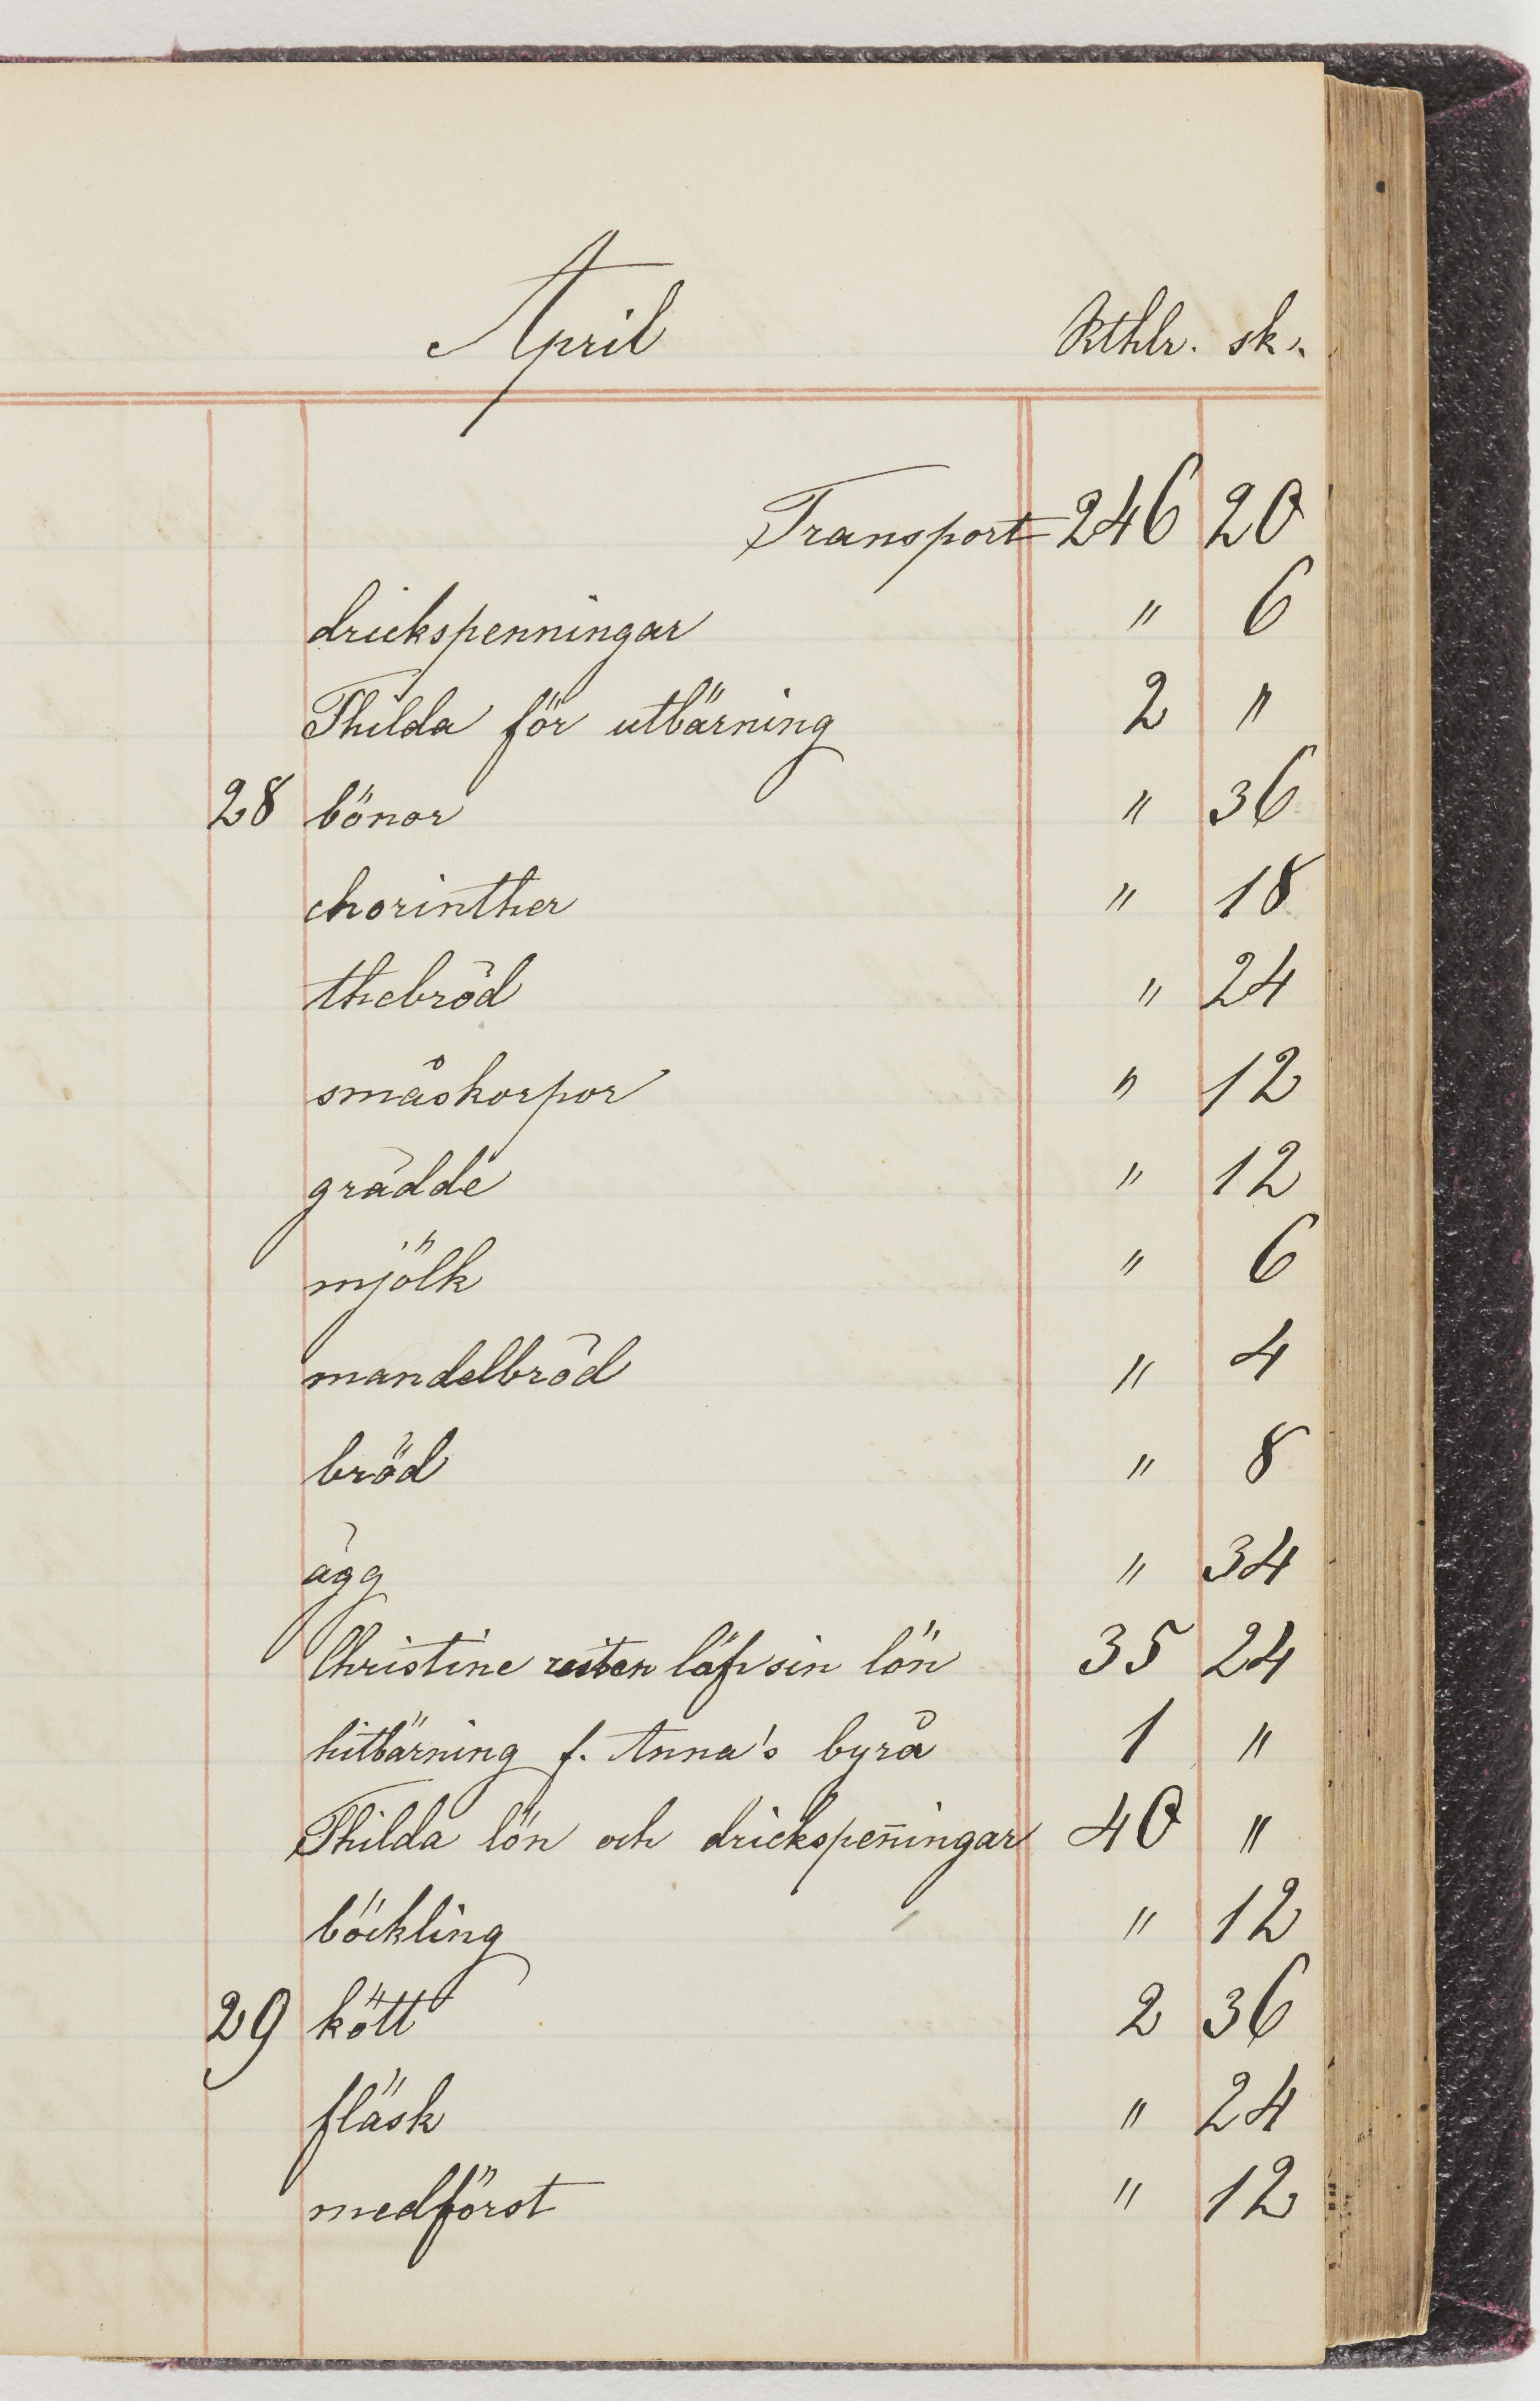 April Rthlr. sk.
Transport 246 20
drickspenningar " 6
Thilda för utbärning 2 "
28 bönor " 36
chorinther " 18
thebröd " 24
småskorpor " 12
grädde " 12
mjölk " 6
mandelbröd " 4
bröd " 8
ägg " 34
Christine resten löp sin lön 35 24
hitbärning f. Anna's byrå 1 "
Thilda lön och drickspen̄ingar 40 "
böckling " 12
29 kött 2 36
fläsk " 24
medförst " 12